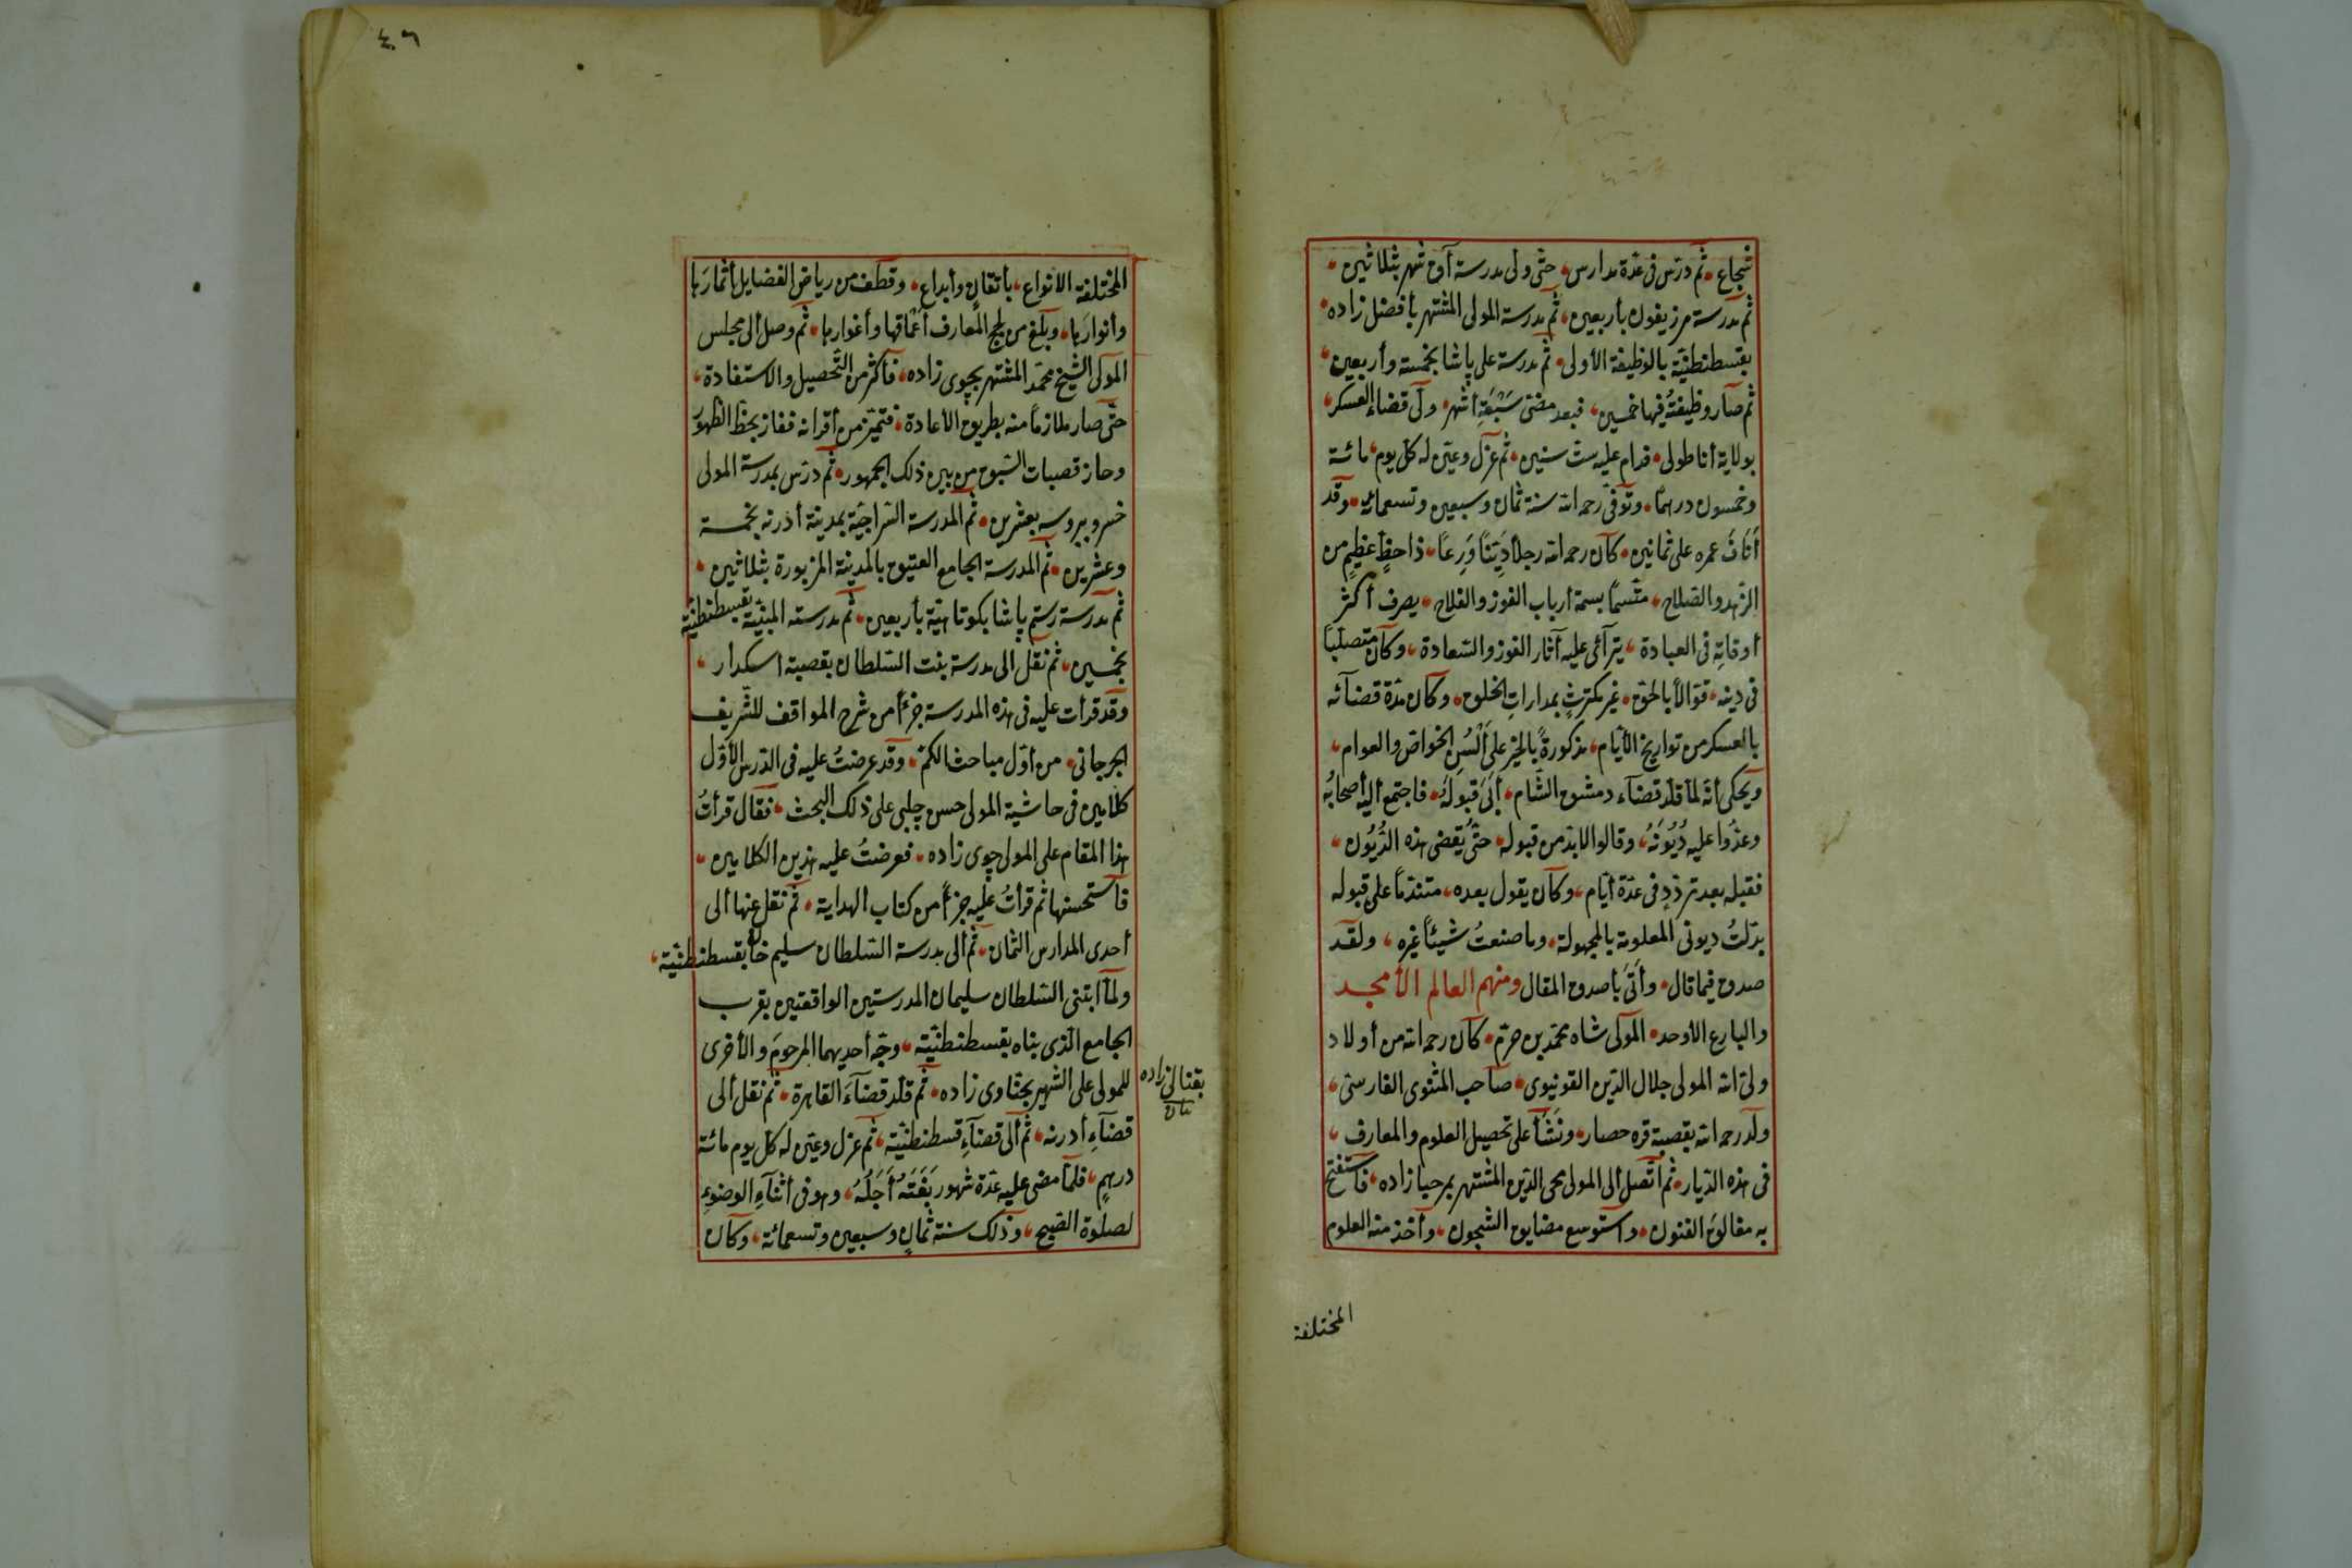 شجاع، ثم درّس فى عدّة مدارس، حتى ولى مدرسة آق شهر بثلاثين،
ثم مدرسة مرزيفون بأربعين، ثم مدرسة المولى المشتهر بأفضل زاده،
بقسطنطنيّة بالوظيفة الأولى، ثم مدرسة على پاشا بخمسة وأربعين،
ثم صار وظيفتُه فيها خمسين، فبعد مضىّ سَبْعَةِ أشهر، ولى قضاء العسكر،
بولاية أناطولى، فدام عليه ستّ سنين، ثم عزل وعيّن له كلّ يوم، مائة
وخمسون درهمًا، وتوفّى رحمه الله سنة ثمان وسبعين وتسعمائه، وقد
أنَافَ عمره على ثمانين، كان رحمه الله رجلا دَيِّنًا وَرِعًا، ذا حظٍّ عظيمٍ من
الزهد والصلاح، متّسمًا بسمة أرباب الفوز والفلاح، يصرف أكثر
أوقاتِه فى العبادة، يترآئى عليه آثار الفوز والسّعادة، وكان متصلّبًا
فى دينه، قوّالًا بالحقّ، غير مكترثٍ بمداراتِ الخلق، وكان مدّة قضآئه
بالعسكر من تواريخ الأيّام، مذكورةً بالخير على ألْسُنِ الخواصّ والعوام،
ويحكى أنّه لمّا قلّد قضآء دمشق الشّام، أبَى قبولَه، فاجتمع أليه أصحابُه
وعدّوا عليه دُيُونَهُ، وقالوا لابدّ من قبوله، حتّى يُقضى هذه الدُّيُون،
فقبله بعد تردّدٍ فى عدّة أيّام، وكان يقول بعده، متندّمًا على قبوله
بدّلتُ ديونى المعلومة بالمجهولة، وما صنعتُ شيئًا غيره، ولقد
صدق فيما قال، وأتَى بأصدق المقال ومنهم العالم الأمجد
والبارع الأوحد، المولى شاه محمّد بن حرّم، كان رحمه الله من أولاد
ولىّ الله المولى جلال الدّين القونيوى، صاحب المثنوى الفارسىّ،
ولد رحمه الله بقصبة قره حصار، ونَشَأ على تحصيل العلوم والمعارف،
فى هذه الدّيار، ثم اتّصل ألى المولى محى الدّين المشتهر بمرحبا زاده، فاستفتح
به مغالقَ الفنون، واستوسع مضايق الشجون، وأخذ منه العلوم
المختلفة
٤٦
المختلفة الانواع، بأتقانٍ وأبداع، وقطف من رياض الفضايل أثمارَها
وأنوارَها، وبلغ من لجج المعارف أعْماقها وأغوارها، ثم وصل ألى مجلس
المولى الشيخ محمّد المشتهر بجوى زاده، فأكثر من التّحصيل والاستفادة،
حتّى صار ملازمًا منه بطريق الأعادة، فتميّز من أقرانه ففاز بحظّ الظهور
وحاز قصبات السّبق من بين ذلك الجمهور، ثم درّس بمدرسة المولى
خسرو ببروسه بعشرين، ثم المدرسة السّراجيّة بمدينة أدرنه بخمسة
وعشرين، ثم المدرسة الجامع العتيق بالمدينة المزبورة بثلاثين،
ثم مدرسة رستم پاشا بكوتاهيّة بأربعين، ثم مدرسته المبنيّة بقسطنطنيّة
بخمسين، ثم نقل الى مدرسة بنت السّلطان بقصبة اسكدار،
وقد قرأت عليه فى هذه المدرسة جزءًا من شرح المواقف للشّريف
الجرجانى، من أوّل مباحث الكمّ، وقد عرضتُ عليه فى الدّرس الأوّل
كلامين فى حاشية المولى حسن چلبى على ذلك البحث، فقال قرأتُ
هذا المقام على المولى جوى زاده، فعرضتُ عليه هذين الكلامين،
فاستحسنها ثم قرأتُ عليه جزءًا من كتاب الهداية، ثم نقل عنها ألى
أحدى المدارس الثمان، ثم ألى مدرسة السّلطان سليم خان بقسطنطنيّة،
ولمّا ابتنى السّلطان سليمان المدرستين الواقعتين بقرب
الجامع الّذى بناه بقسطنطنيّة، وجّه أحديهما للمرحوم والأخرى
للمولى على الشهير بحنّاوى زاده، ثم قلّد قضآءَ القاهرة، ثم نقل ألى
قضآءِ أدرنه، ثم ألى قضآءِ قسطنطنيّة، ثم عزل وعيّن له كلّ يوم مائة
درهمٍ، فلمّا مضى عليه عدّة شهور بَغَتَهُ أَجَلُهُ، وهو فى أثنآءِ الوضوءِ
لصلوة الصّبح، وذلك سنة ثمانٍ وسبعين وتسعمائة، وكان